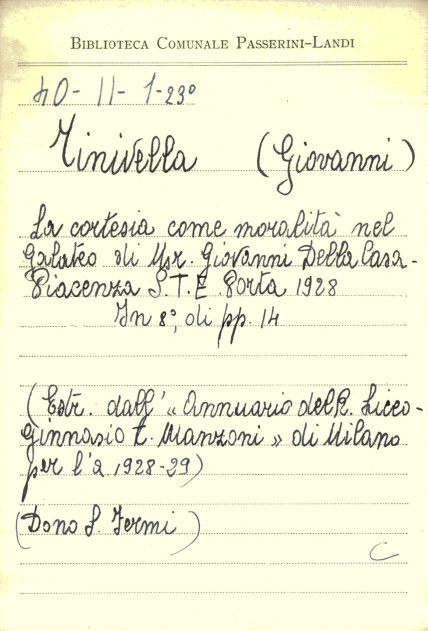 BIBLIOTECA COMUNALE PASSERINI-LANDI
40- 11- 1-23º
Minivella (Giovanni)
La cortesia come moralità nel
Galateo di Msr. Giovanni Della Casa-
Piacenza S.T.E. Porta 1928
In 8º, di pp. 14
(Estr. dall' « Annuario del R. Liceo-
Ginnasio A. Manzoni » di Milano
per l'a 1928-29)
(Dono S. Fermi)
C